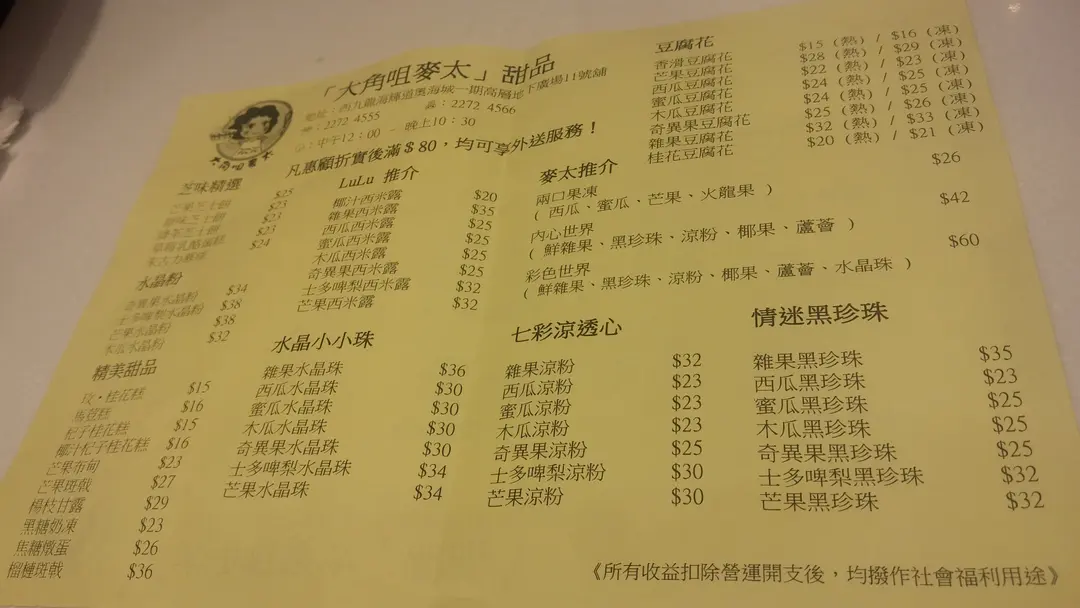 「大角咀麥太」甜品
地址：西九龍海輝道奧海城一期高層地下廣場11號舖
☎：2272 4555 2272 4566
中午12：00 － 晚上10：30
凡惠顧折實後滿＄80，均可享外送服務！
大角咀麥太
芝味精選
芒果芝士餅 $25
芝士餅 $23
芝士餅 $23
$23
$24
水晶粉
奇異果水晶粉 $34
士多啤梨水晶粉 $38
芒果水晶粉 $38
木瓜水晶粉 $32
精美甜品
玫・桂花糕 $15
馬荳糕 $16
杞子桂花糕 $15
椰汁杞子桂花糕 $16
芒果布甸 $23
芒果斑戟 $27
楊枝甘露 $29
黑糖奶凍 $23
焦糖燉蛋 $26
榴槤斑戟 $36
LuLu 推介
椰汁西米露 $20
雜果西米露 $35
西瓜西米露 $25
蜜瓜西米露 $25
木瓜西米露 $25
奇異果西米露 $25
士多啤梨西米露 $32
芒果西米露 $32
水晶小小珠
雜果水晶珠 $36
西瓜水晶珠 $30
蜜瓜水晶珠 $30
木瓜水晶珠 $30
奇異果水晶珠 $30
士多啤梨水晶珠 $34
芒果水晶珠 $34
豆腐花
香滑豆腐花 $15 (熱) / $16 (凍)
芒果豆腐花 $28 (熱) / $29 (凍)
西瓜豆腐花 $22 (熱) / $23 (凍)
蜜瓜豆腐花 $24 (熱) / $25 (凍)
木瓜豆腐花 $24 (熱) / $25 (凍)
奇異果豆腐花 $25 (熱) / $26 (凍)
雜果豆腐花 $32 (熱) / $33 (凍)
桂花豆腐花 $20 (熱) / $21 (凍)
麥太推介
兩口果凍 $26
( 西瓜、蜜瓜、芒果、火龍果 )
內心世界 $42
( 鮮雜果、黑珍珠、涼粉、椰果、蘆薈 )
彩色世界 $60
( 鮮雜果、黑珍珠、涼粉、椰果、蘆薈、水晶珠 )
七彩涼透心
雜果涼粉 $32
西瓜涼粉 $23
蜜瓜涼粉 $23
木瓜涼粉 $23
奇異果涼粉 $25
士多啤梨涼粉 $30
芒果涼粉 $30
情迷黑珍珠
雜果黑珍珠 $35
西瓜黑珍珠 $23
蜜瓜黑珍珠 $25
木瓜黑珍珠 $25
奇異果黑珍珠 $25
士多啤梨黑珍珠 $32
芒果黑珍珠 $32
《所有收益扣除營運開支後，均撥作社會福利用途》